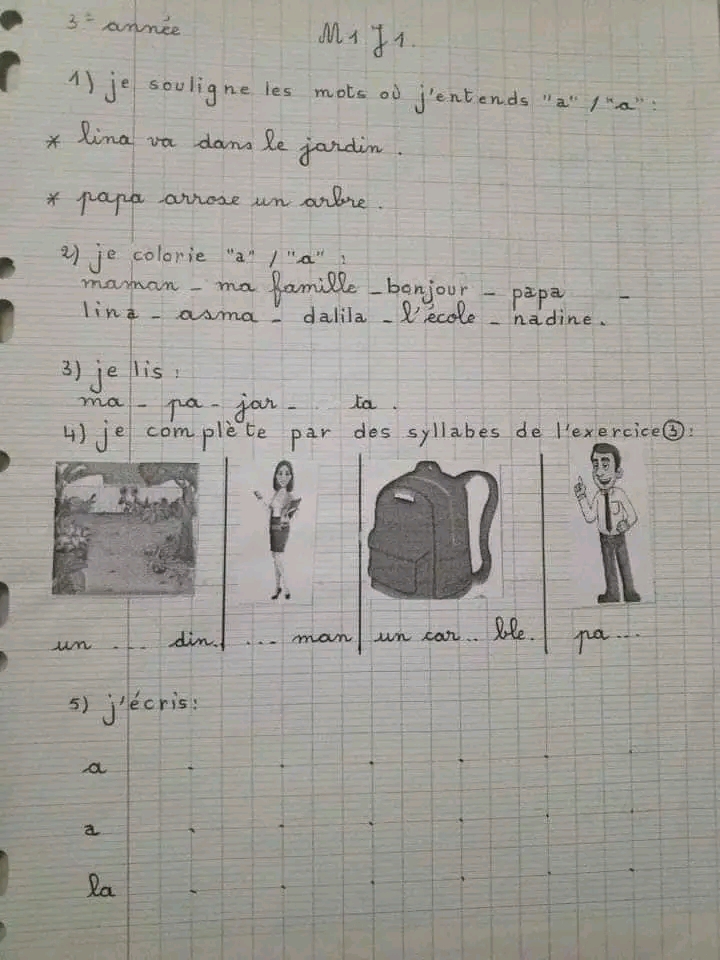 3e année
M1 J1.
1) je souligne les mots où j'entends "a" / "a" :
* lina va dans le jardin .
* papa arrose un arbre .
2) je colorie "a" / "a" :
maman - ma famille - bonjour - papa -
lina - asma - dalila - l'école - nadine .
3) je lis :
ma - pa - jar - . ta .
4) je complète par des syllabes de l'exercice ③ :
un ... din. ... man un car .. ble. pa ...
5) j'écris :
a . . . . . .
a . . . . . .
la . . . . . .